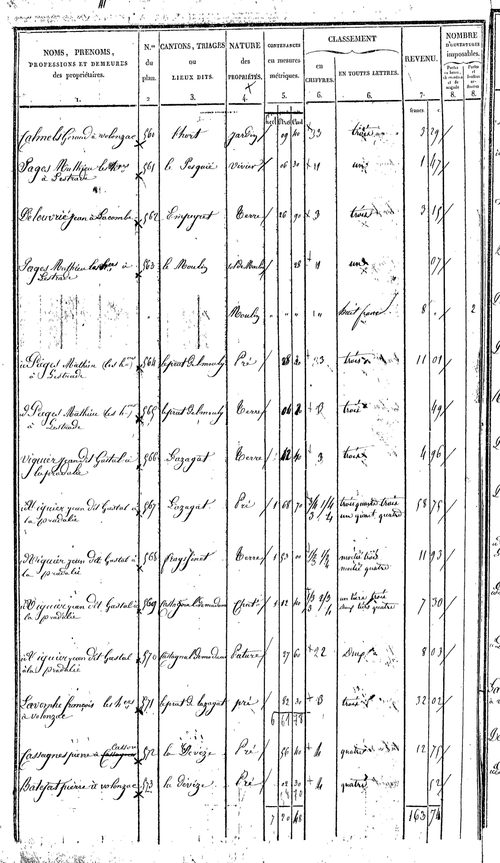 NOMS, PRENOMS,
PROFESSIONS ET DEMEURES
des propriétaires.
1.
N.os
du
plan.
2
CANTONS, TRIAGES
ou
LIEUX DITS.
3.
NATURE
des
PROPRIÉTÉS.
4.
CONTENANCES
en mesures
métriques.
5.
CLASSEMENT
en
CHIFFRES.
6.
EN TOUTES LETTRES.
6.
REVENU.
7.
NOMBRE
D'OUVERTURES
imposables.
8.
8.
francs
Calmels Giraud à volonzac 560 l'hort jardin 09 40 3 trois 3 29
Pages Mathieu les hers 561 le Pesquié vivier 06 30 1 un 1 47
à Lestrade
Delouvrié jean à Lacombe 562 Terre 26 90 3 trois 3 15
Pages Mathieu les hers à 563 le Moulin sol de Moulin 28 1 un 07
Lestrade
Moulin " " " 1 " huit francs 8 " 2
Pages Mathieu (les hers 564 le prat Delmouly Pré 28 3 trois 11 01
à Lestrade
Pages Mathieu (les hers 565 le prat Delmouly Terre 06 3 trois 49
à Lestrade
Viguier jean dit Gastal à 566 Lazagat Terre 42 40 3 trois 4 96
la pradalié
Viguier jean dit Gastal à 567 Lazagat Pré 1 68 70 3/4 1/4 trois quarts trois 58 75
la pradalié 3 4 un quart quatre
Viguier jean dit Gastal à 568 frayssinet Terre 1 53 00 moitié trois 11 93
la pradalié moitié quatre
Viguier jean dit Gastal à 569 1 12 40 1/3 2/3 un tiers trois 7 30
la pradalié 3 4 deux tiers quatre
Viguier jean dit Gastal 570 Pature 27 60 2 Deux 8 03
à la pradalié
Laverphe françois les hers 571 le prat de lazagat pré 82 30 3 trois 32 02
à volonzac
6 61 78
Cassagnes pierre à Cassou 572 la Devèze Pré 56 40 4 quatre 12 75
Batefat pierre à volonzac 573 la Devèze Pré 02 30 4 quatre 52
7 20 48 163 74